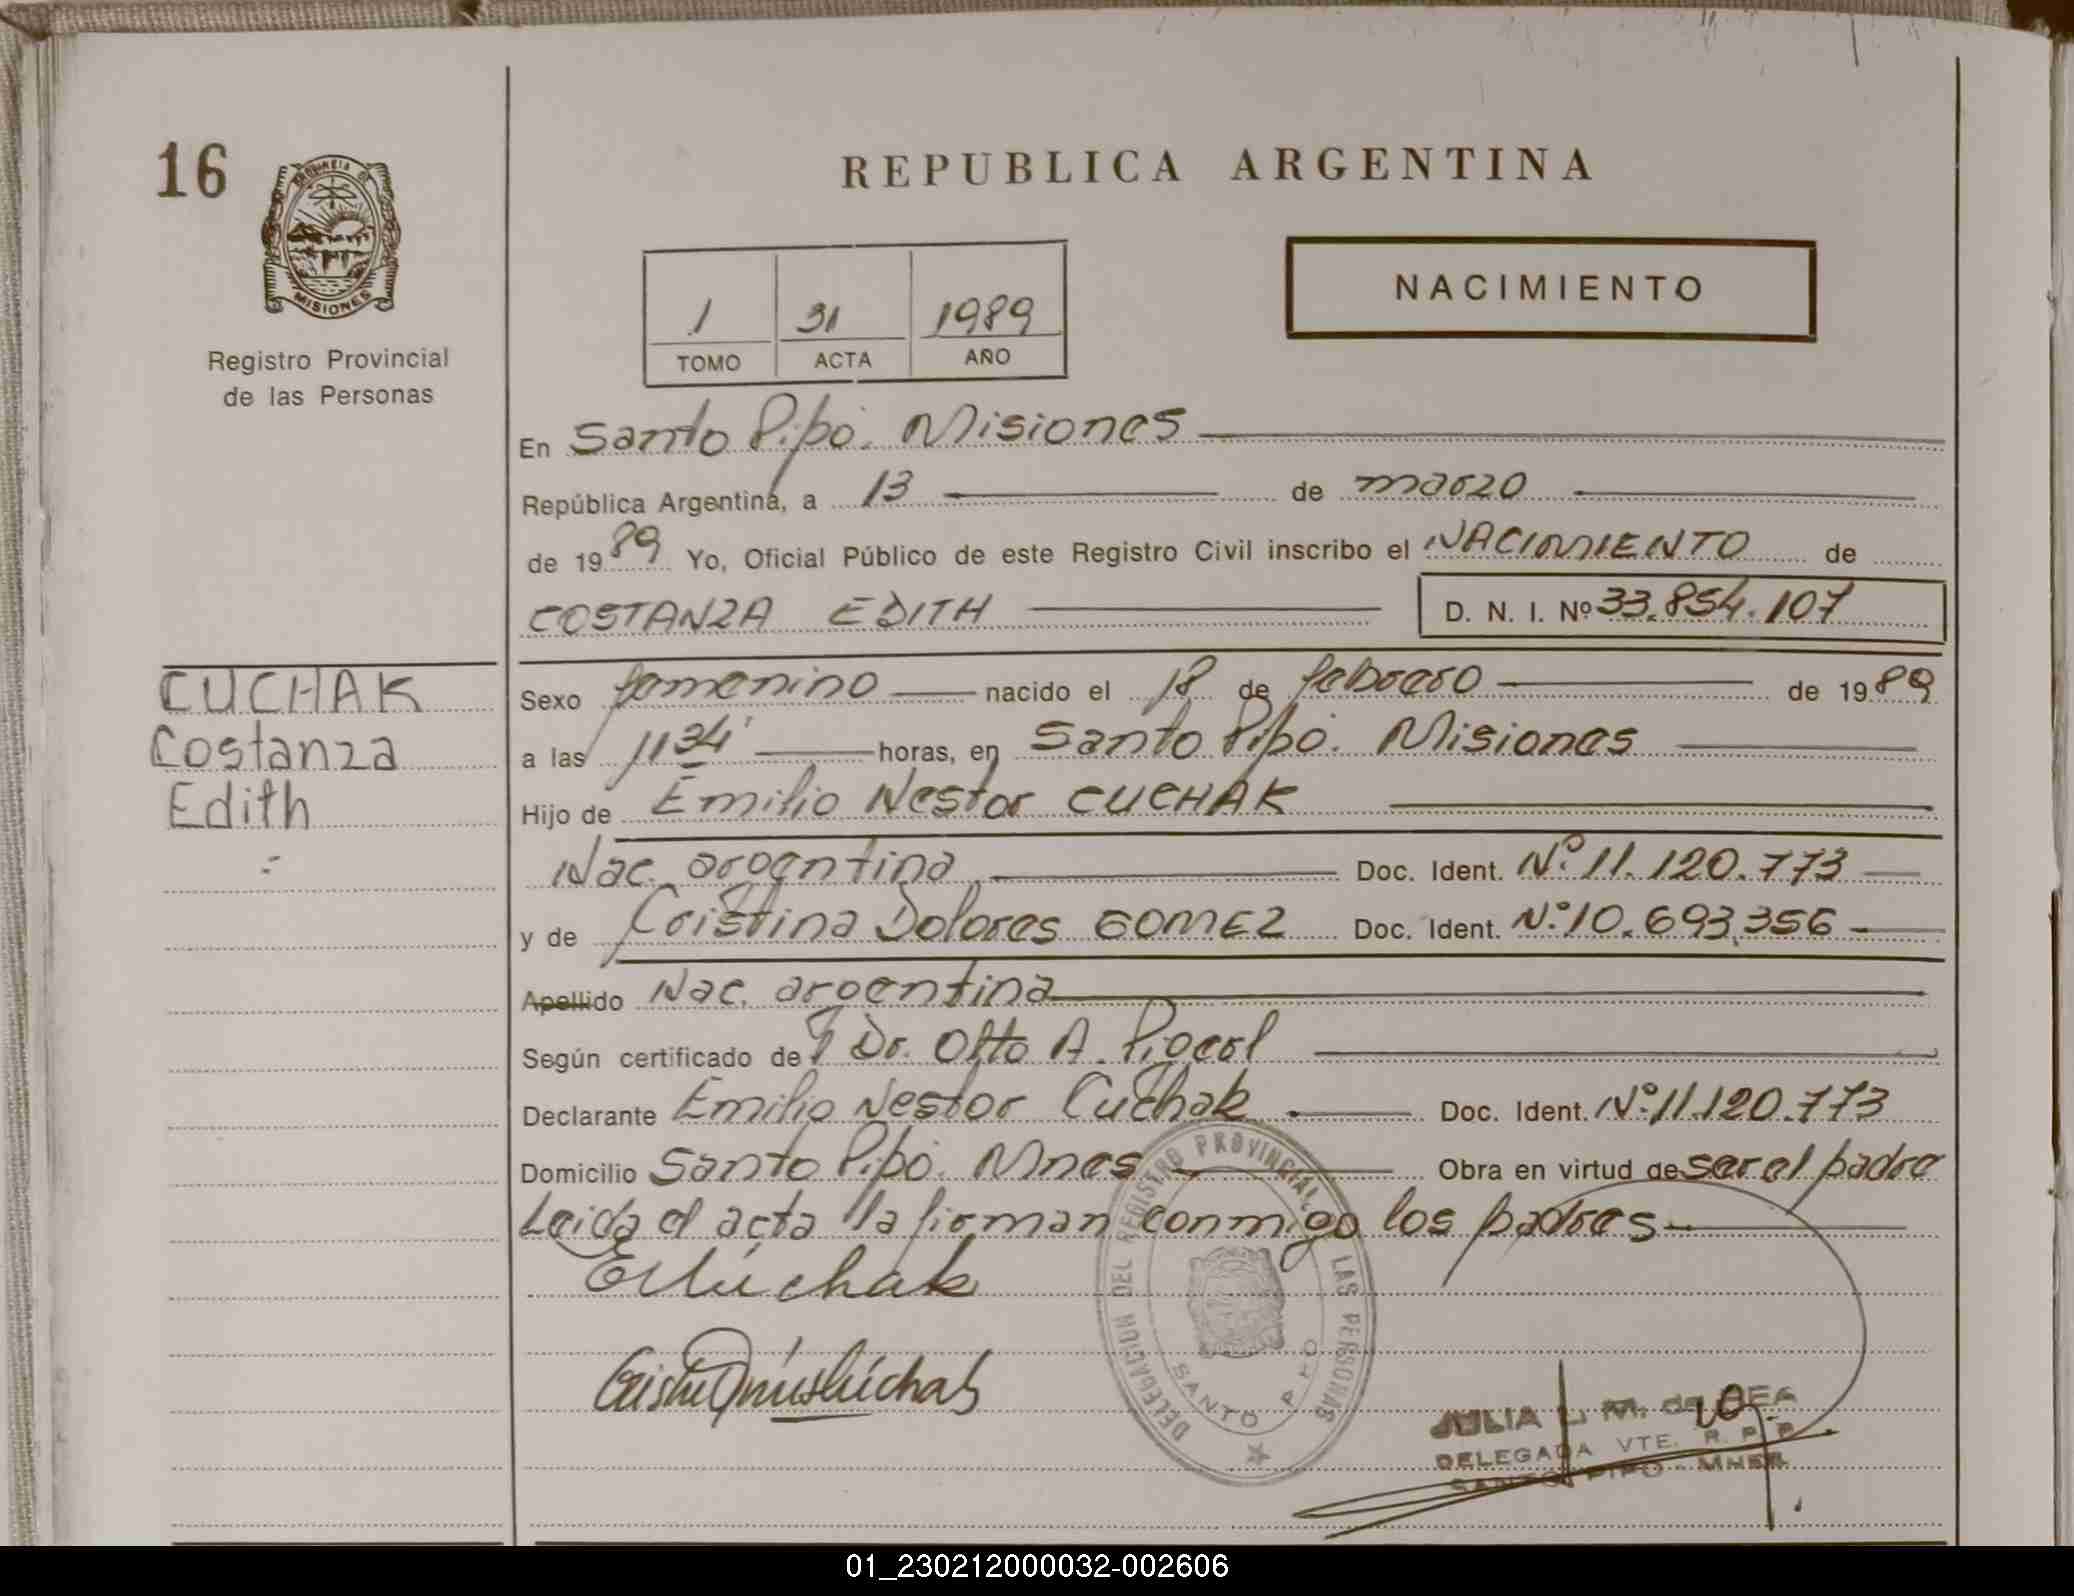 16
PROVINCIA DE
MISIONES
Registro Provincial
de las Personas
REPUBLICA ARGENTINA
NACIMIENTO
1 31 1989
TOMO ACTA AÑO
En Santo Pipó. Misiones
República Argentina, a 13 de marzo
de 1989 Yo, Oficial Público de este Registro Civil inscribo el NACIMIENTO de
COSTANZA EDITH D. N. I. Nº 33.854.107
CUCHAK
Costanza
Edith
Sexo femenino nacido el 18 de febrero de 1989
a las 11 34' horas, en Santo Pipó. Misiones
Hijo de Emilio Nestor CUCHAK
Nac. argentina Doc. Ident. Nº 11.120.773
y de Cristina Dolores GOMEZ Doc. Ident. Nº 10.693.356
Apellido Nac. argentina
Según certificado de Dr. Otto A.
Declarante Emilio Nestor Cuchak Doc. Ident. Nº 11.120.773
Domicilio Santo Pipó. Mnes Obra en virtud de ser el padre
Leida el acta la firman conmigo los padres
DELEGACION DEL REGISTRO PROVINCIAL LAS PERSONAS
SANTO PIPO
ECuchak
JULIA L. M. de
DELEGADA VTE. R. P. P.
SANTO PIPO - MNES.
01_230212000032-002606